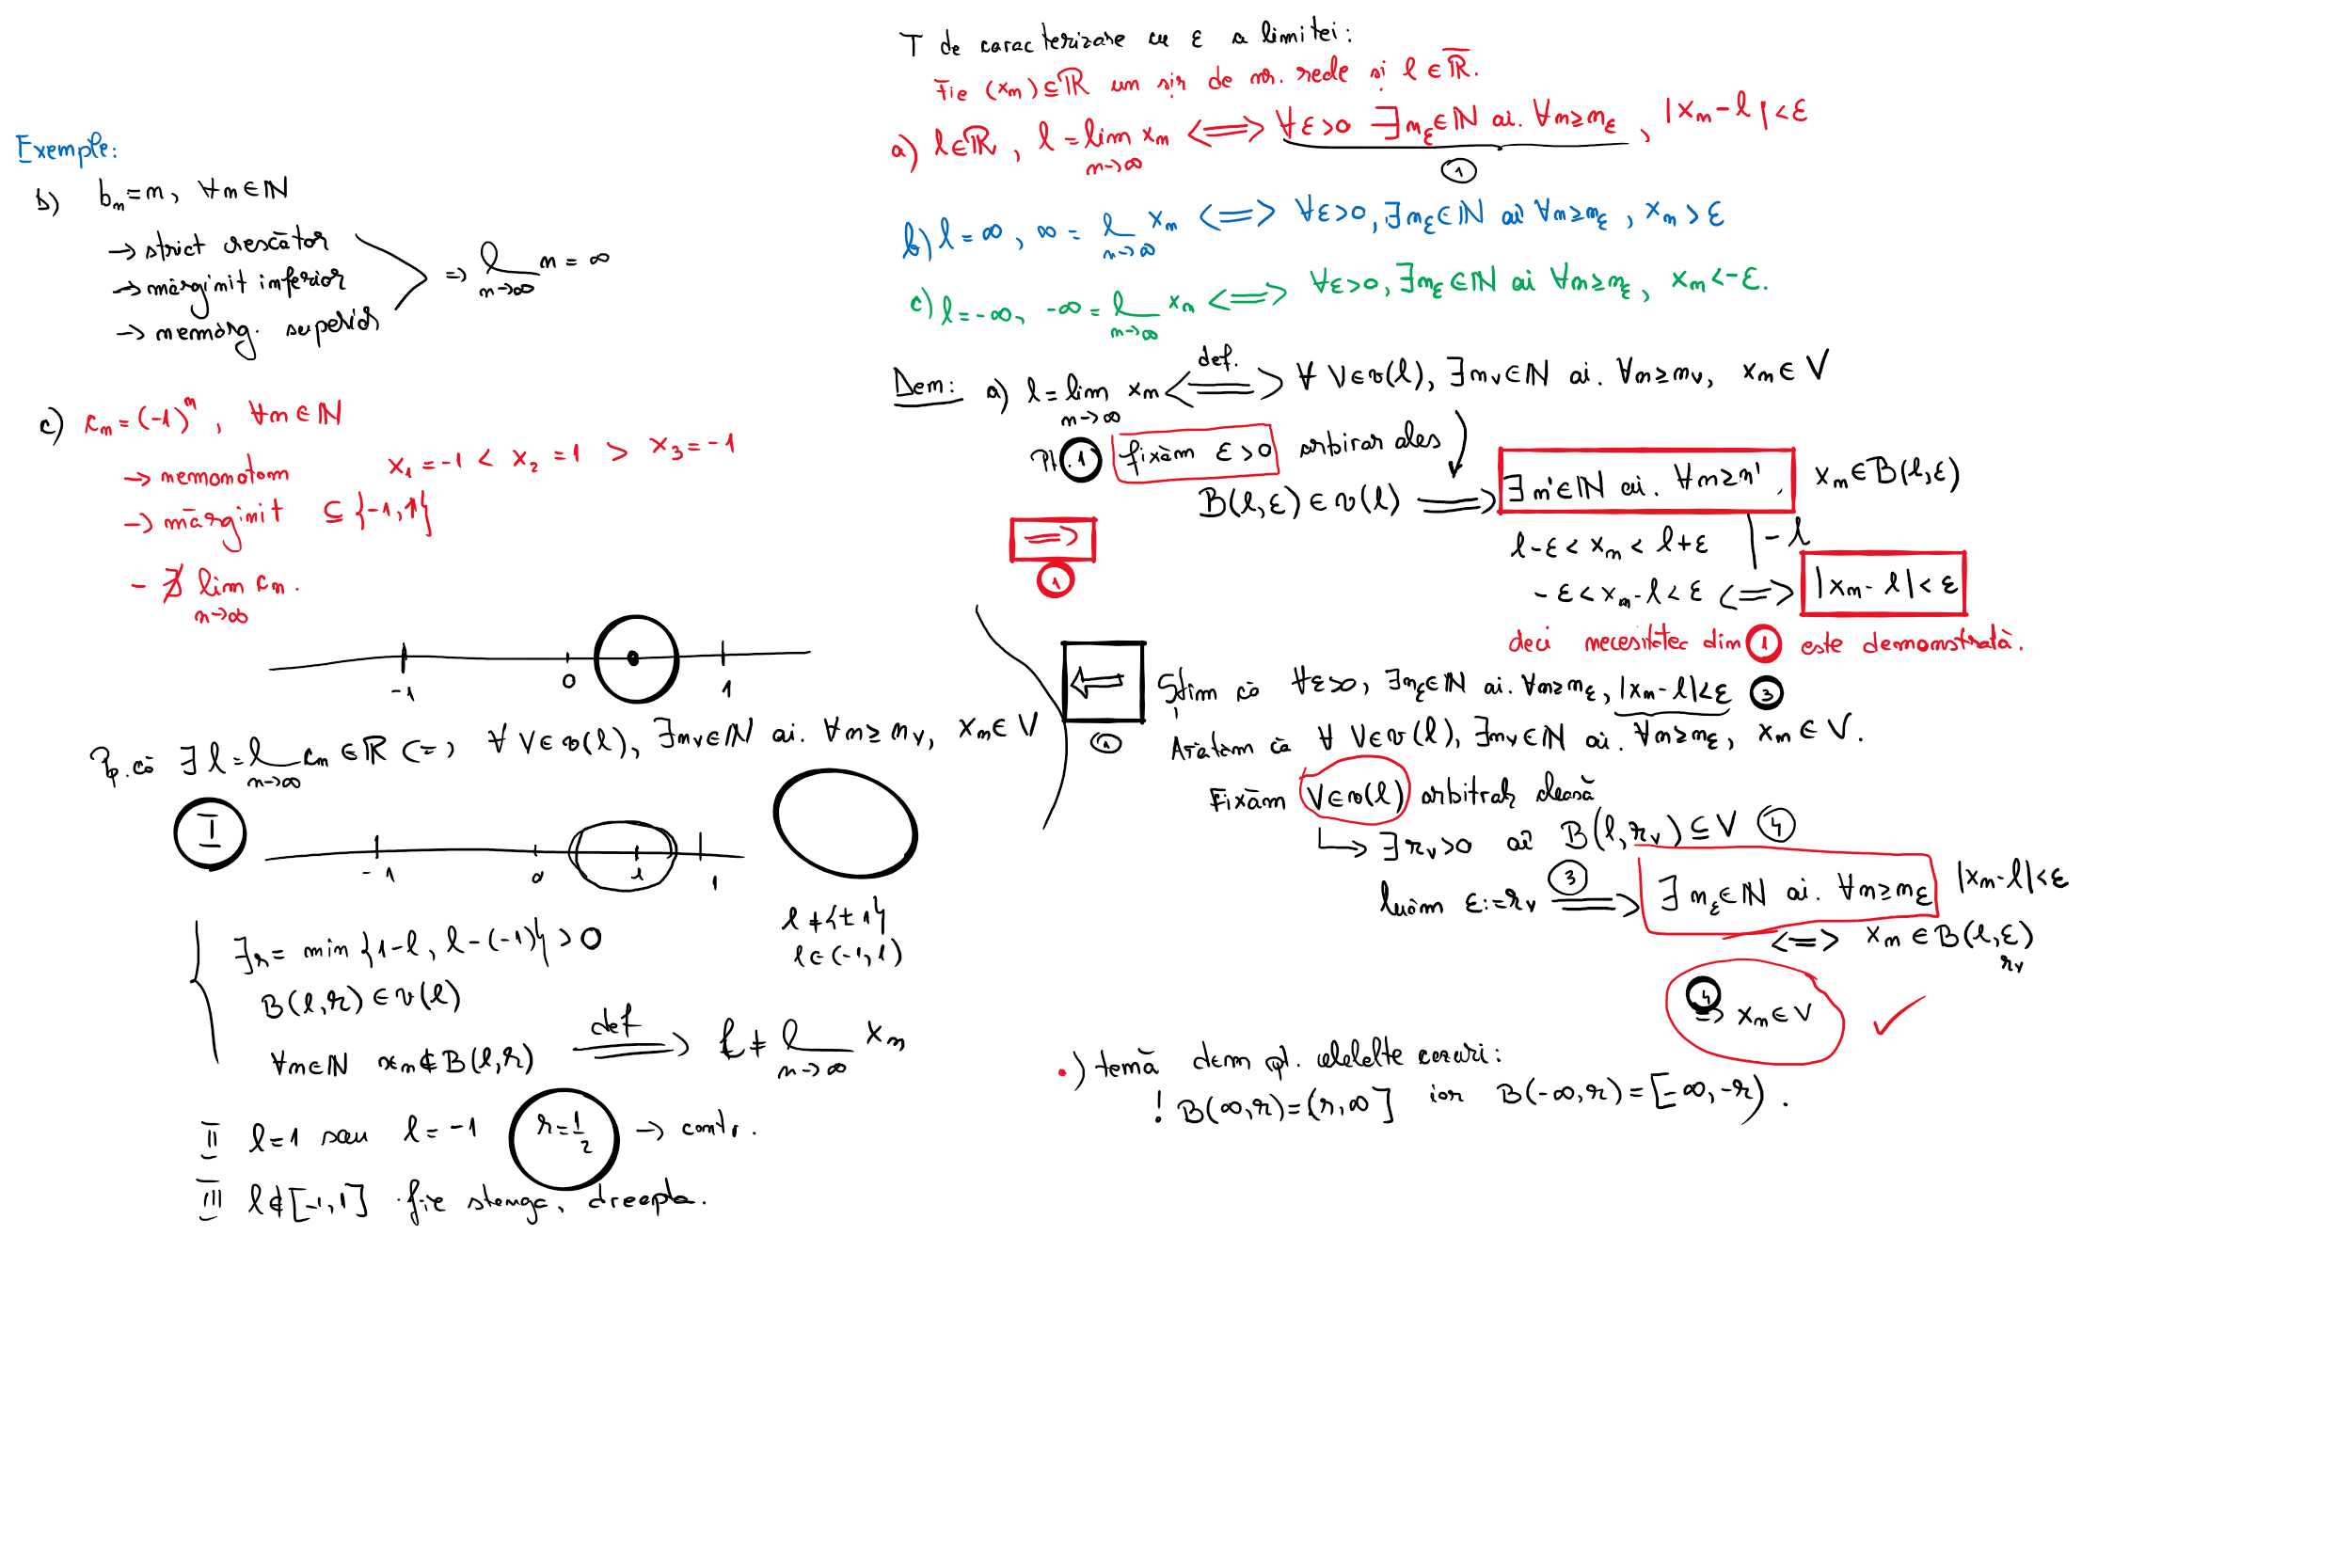 Exemple:
b) bₙ = n, ∀n∈ℕ
→ strict crescător
→ mărginit inferior
→ nemărg. superior
⇒ l___ n = ∞
n→∞
c) cₙ = (-1)ⁿ, ∀n∈ℕ
→ nemonoton x₁ = -1 < x₂ = 1 > x₃ = -1
→ mărginit ⊆ {-1, 1}
- ∄ lim cₙ.
n→∞
-1 0 1
Pp. că ∃ l = l___ cₙ ∈ ℝ̄ (=) ∀ V∈𝒱(l), ∃nᵥ∈ℕ ai. ∀n≥nᵥ, xₙ∈V
n→∞
I
-1 0 l 1
l ≠ {±1}
l∈(-1,1)
∃r = min {1-l, l-(-1)} > 0
B(l,r) ∈ 𝒱(l)
∀n∈ℕ xₙ∉B(l,r) def ⟹ l ≠ l___ xₙ
n→∞
II l=1 sau l=-1 r=1/2 → contr.
III l∉[-1,1] fie stenga, dreapta.
T de caracterizare cu ε a limitei:
Fie (xₙ)⊆ℝ un șir de nr. reale și l∈ℝ̄.
a) l∈ℝ, l = lim xₙ ⟺ ∀ε>0 ∃n_ε∈ℕ ai. ∀n≥n_ε, |xₙ-l|<ε
n→∞ 1
b) l=∞, ∞ = l___ xₙ ⟺ ∀ε>0, ∃n_ε∈ℕ aî ∀n≥n_ε, xₙ>ε
n→∞
c) l=-∞, -∞ = l___ xₙ ⟺ ∀ε>0, ∃n_ε∈ℕ ai ∀n≥n_ε, xₙ<-ε.
n→∞
Dem: a) l = lim xₙ ⟺ def. ∀ V∈𝒱(l), ∃nᵥ∈ℕ ai. ∀n≥nᵥ, xₙ∈V
n→∞
Pt. 1 fixăm ε>0 arbirar ales
B(l,ε)∈𝒱(l) ⟹ ∃n'∈ℕ ai. ∀n≥n', xₙ∈B(l,ε)
⇒
1
l-ε < xₙ < l+ε | -l
-ε < xₙ-l < ε ⟺ |xₙ-l|<ε
deci necesitatec din 1 este demonstrată.
⇐
1
Știm că ∀ε>0, ∃n_ε∈ℕ ai. ∀n≥n_ε, |xₙ-l|<ε 3
Arătăm că ∀ V∈𝒱(l), ∃nᵥ∈ℕ ai. ∀n≥n_ε, xₙ∈V.
Fixăm V∈𝒱(l) arbitrar aleasă
↳ ∃rᵥ>0 aî B(l,rᵥ)⊆V 4
luăm ε:=rᵥ 3 ⟹ ∃n_ε∈ℕ ai. ∀n≥n_ε |xₙ-l|<ε
⟺ xₙ∈B(l,ε)
rᵥ
4
⇒ xₙ∈V ✓
•) temă dem pt. celelalte cazuri:
! B(∞,r)=(r,∞] iar B(-∞,r)=[-∞,-r).